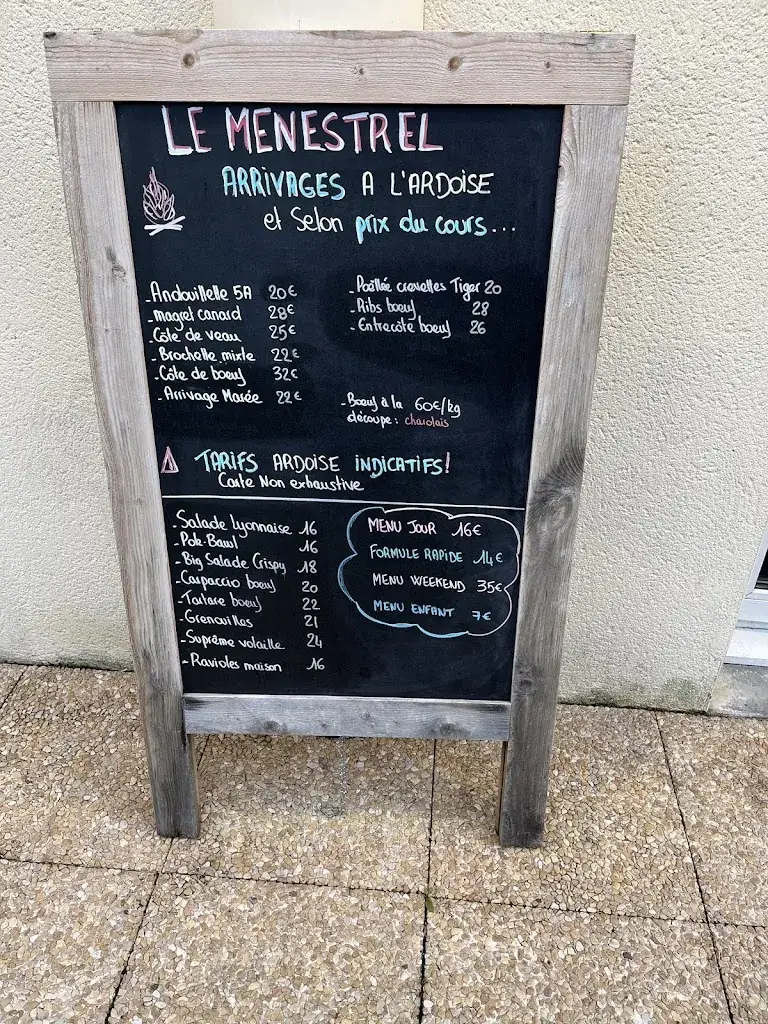 LE MENESTREL
ARRIVAGES A L'ARDOISE
et Selon prix du cours...
- Andouillelle 5A 20€
- magret canard 28€
- Côte de veau 25€
- Brochelle mixte 22€
- Côte de boeuf 32€
- Arrivage Marée 22€
- Poêllée crevelles Tiger 20
- Ribs boeuf 28
- Entrecôte boeuf 26
- Boeuf à la 60€/kg
découpe : charolais
TARIFS ARDOISE INDICATIFS!
Carte Non exhaustive
- Salade lyonnaise 16
- Pok-Bawl 16
- Big Salade Crispy 18
- Carpaccio boeuf 20
- Tartare boeuf 22
- Grenouilles 21
- Suprême volaille 24
- Ravioles maison 16
MENU JOUR 16€
FORMULE RAPIDE 14€
MENU WEEKEND 35€
MENU ENFANT 7€